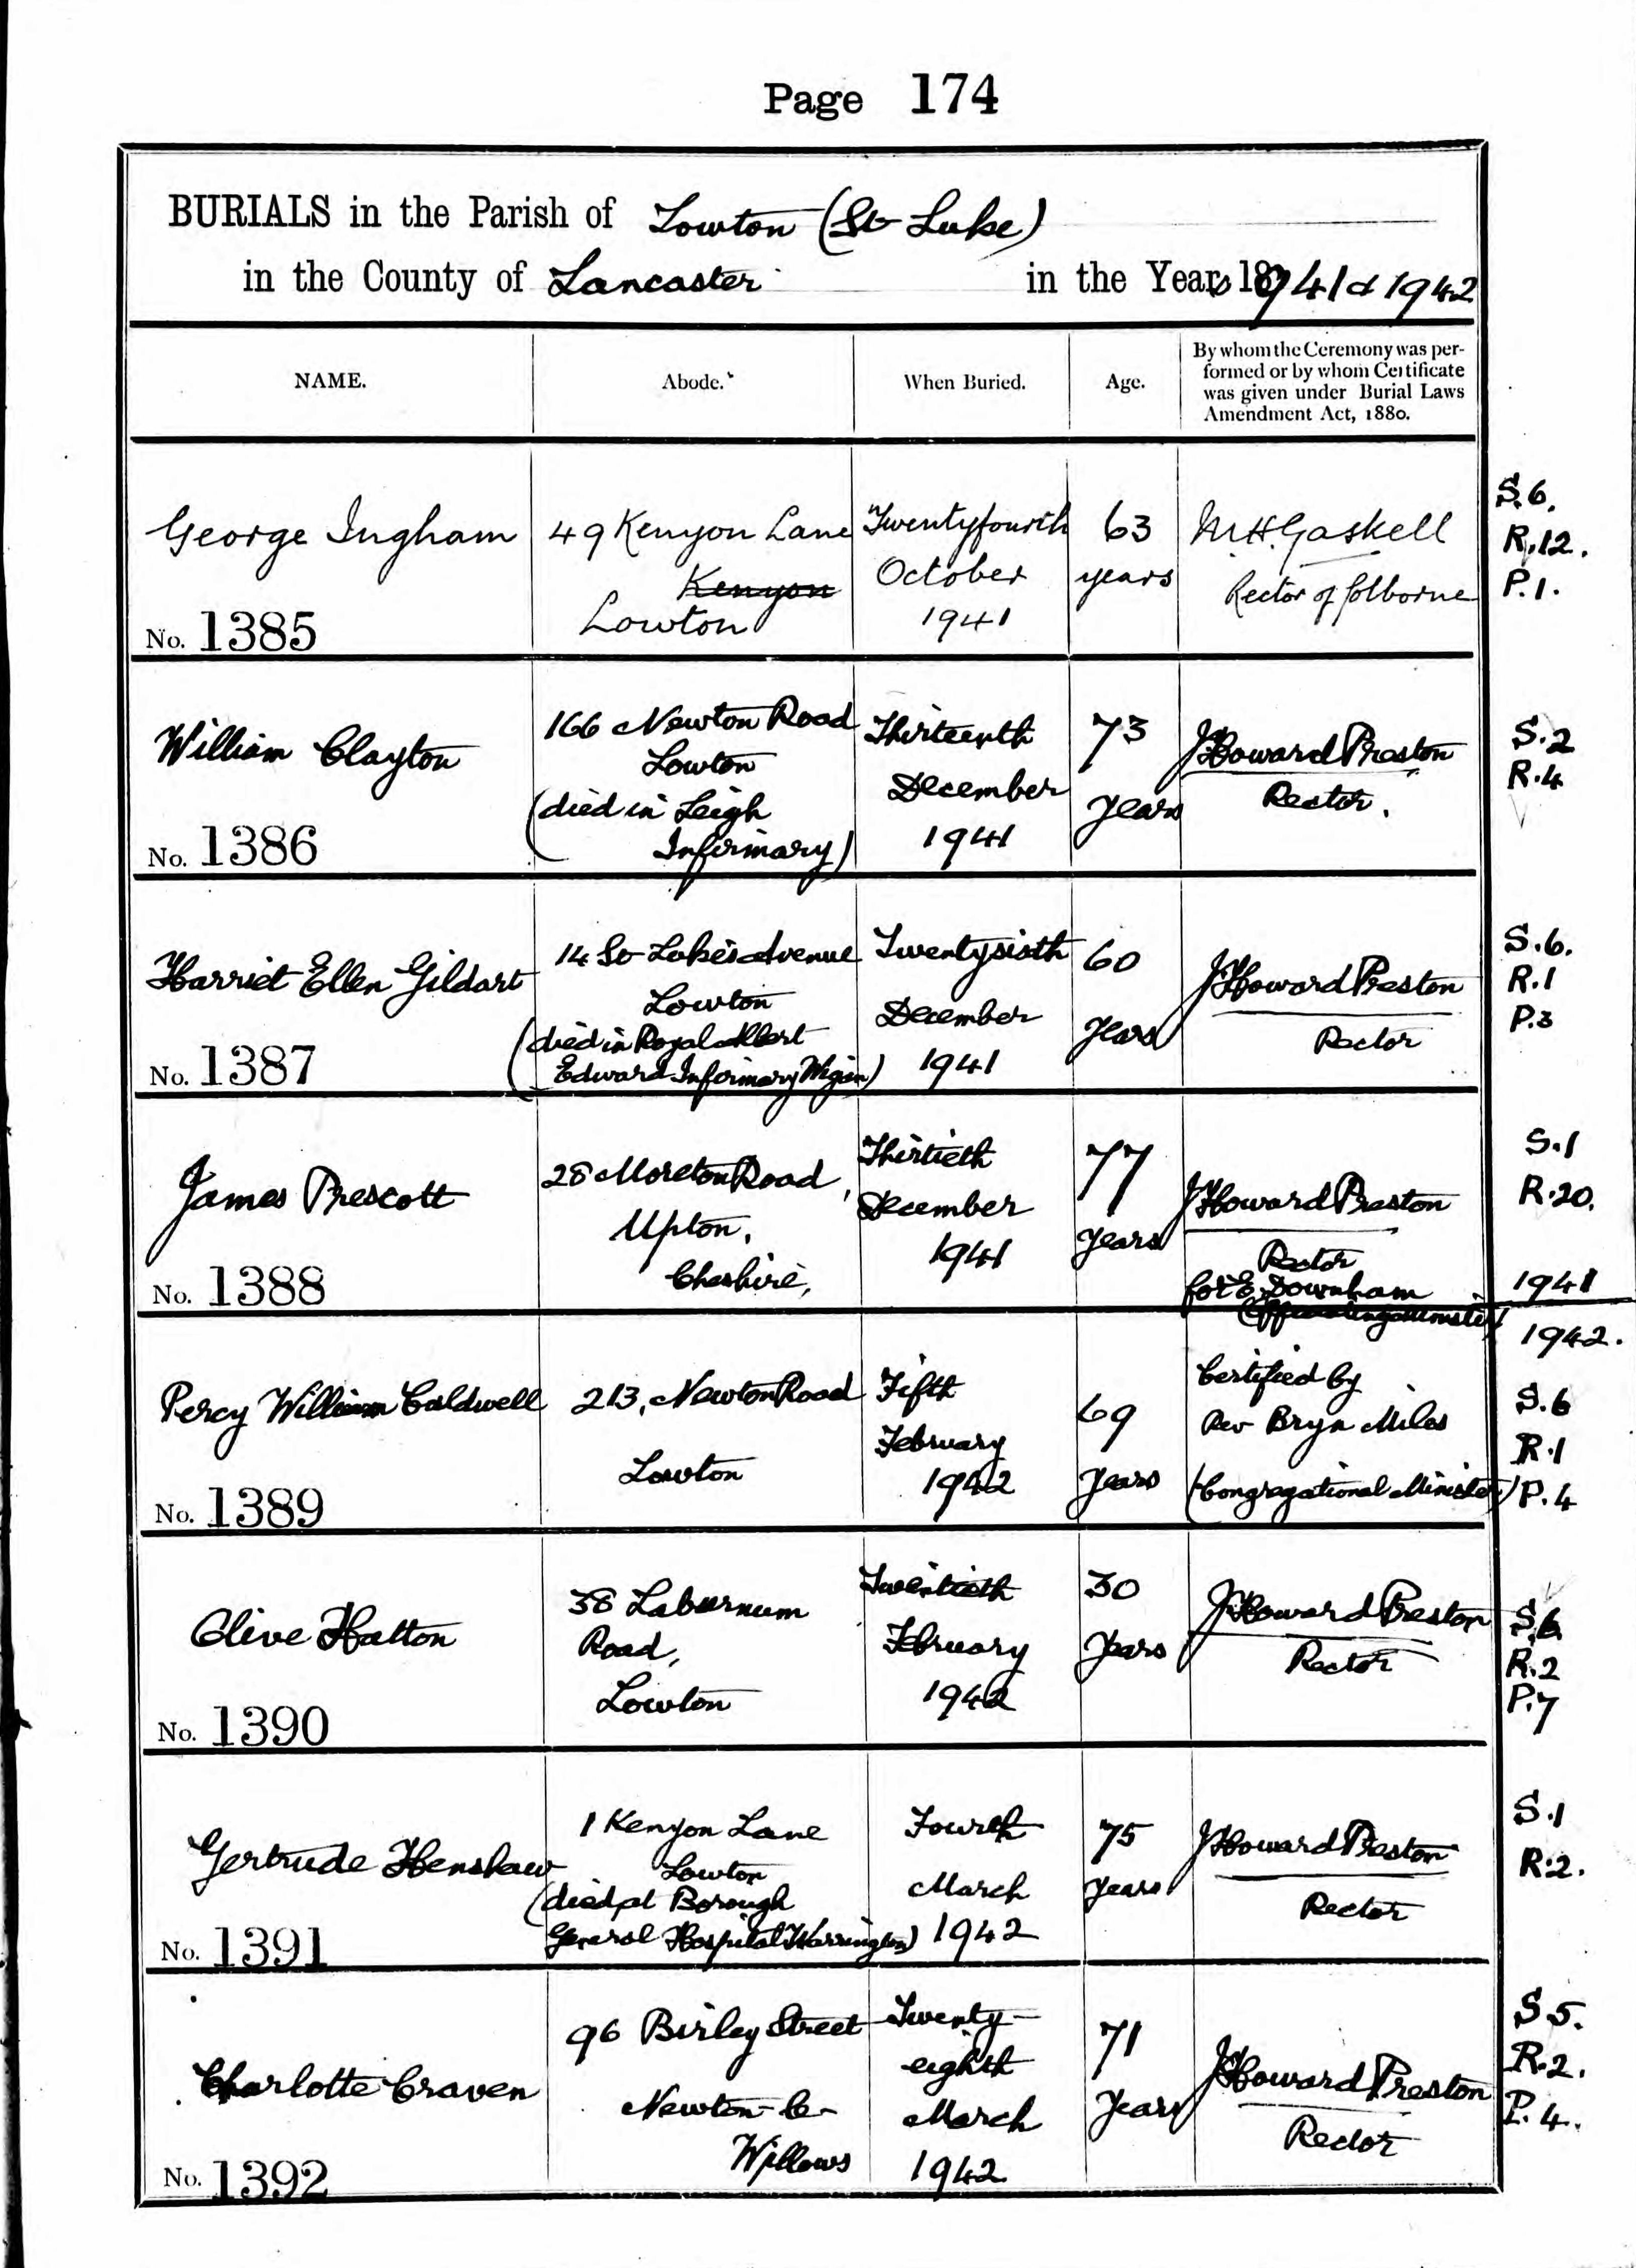 Page 174
BURIALS in the Parish of Lowton (St Luke)
in the County of Lancaster in the Years 1941 & 1942
NAME. Abode. When Buried. Age. By whom the Ceremony was per-
formed or by whom Certificate
was given under Burial Laws
Amendment Act, 1880.
George Ingham
No. 1385
49 Kenyon Lane
Kenyon
Lowton
Twentyfourth
October
1941
63
years
M.H. Gaskell
Rector of Golborne
S.6.
R.12.
P.1.
William Clayton
No. 1386
166 Newton Road
Lowton
(died in Leigh
Infirmary)
Thirteenth
December
1941
73
years
J Howard Preston
Rector.
S.2
R.4
Harriet Ellen Gildart
No. 1387
14 St Luke's Avenue
Lowton
(died in Royal Albert
Edward Infirmary Wigan)
Twentysixth
December
1941
60
years
J Howard Preston
Rector
S.6.
R.1
P.3
James Prescott
No. 1388
28 Moreton Road,
Upton,
Cheshire,
Thirtieth
December
1941
77
years
J Howard Preston
Rector
for E. Downham
(Officiating Minister)
S.1
R.20.
1941
1942.
Percy William Caldwell
No. 1389
213, Newton Road
Lowton
Fifth
February
1942
69
years
Certified by
Rev Bryn Miles
(Congregational Minister)
S.6
R.1
P.4
Olive Hatton
No. 1390
38 Laburnum
Road,
Lowton
Twentieth
February
1942
30
years
J Howard Preston
Rector
S.6
R.2
P.7
Gertrude Henshaw
No. 1391
1 Kenyon Lane
Lowton
(died at Borough
General Hospital Warrington)
Fourth
March
1942
75
years
J Howard Preston
Rector
S.1
R.2.
Charlotte Craven
No. 1392
96 Birley Street
Newton-le-
Willows
Twenty-
eighth
March
1942
71
years
J Howard Preston
Rector
S 5.
R.2.
P.4.